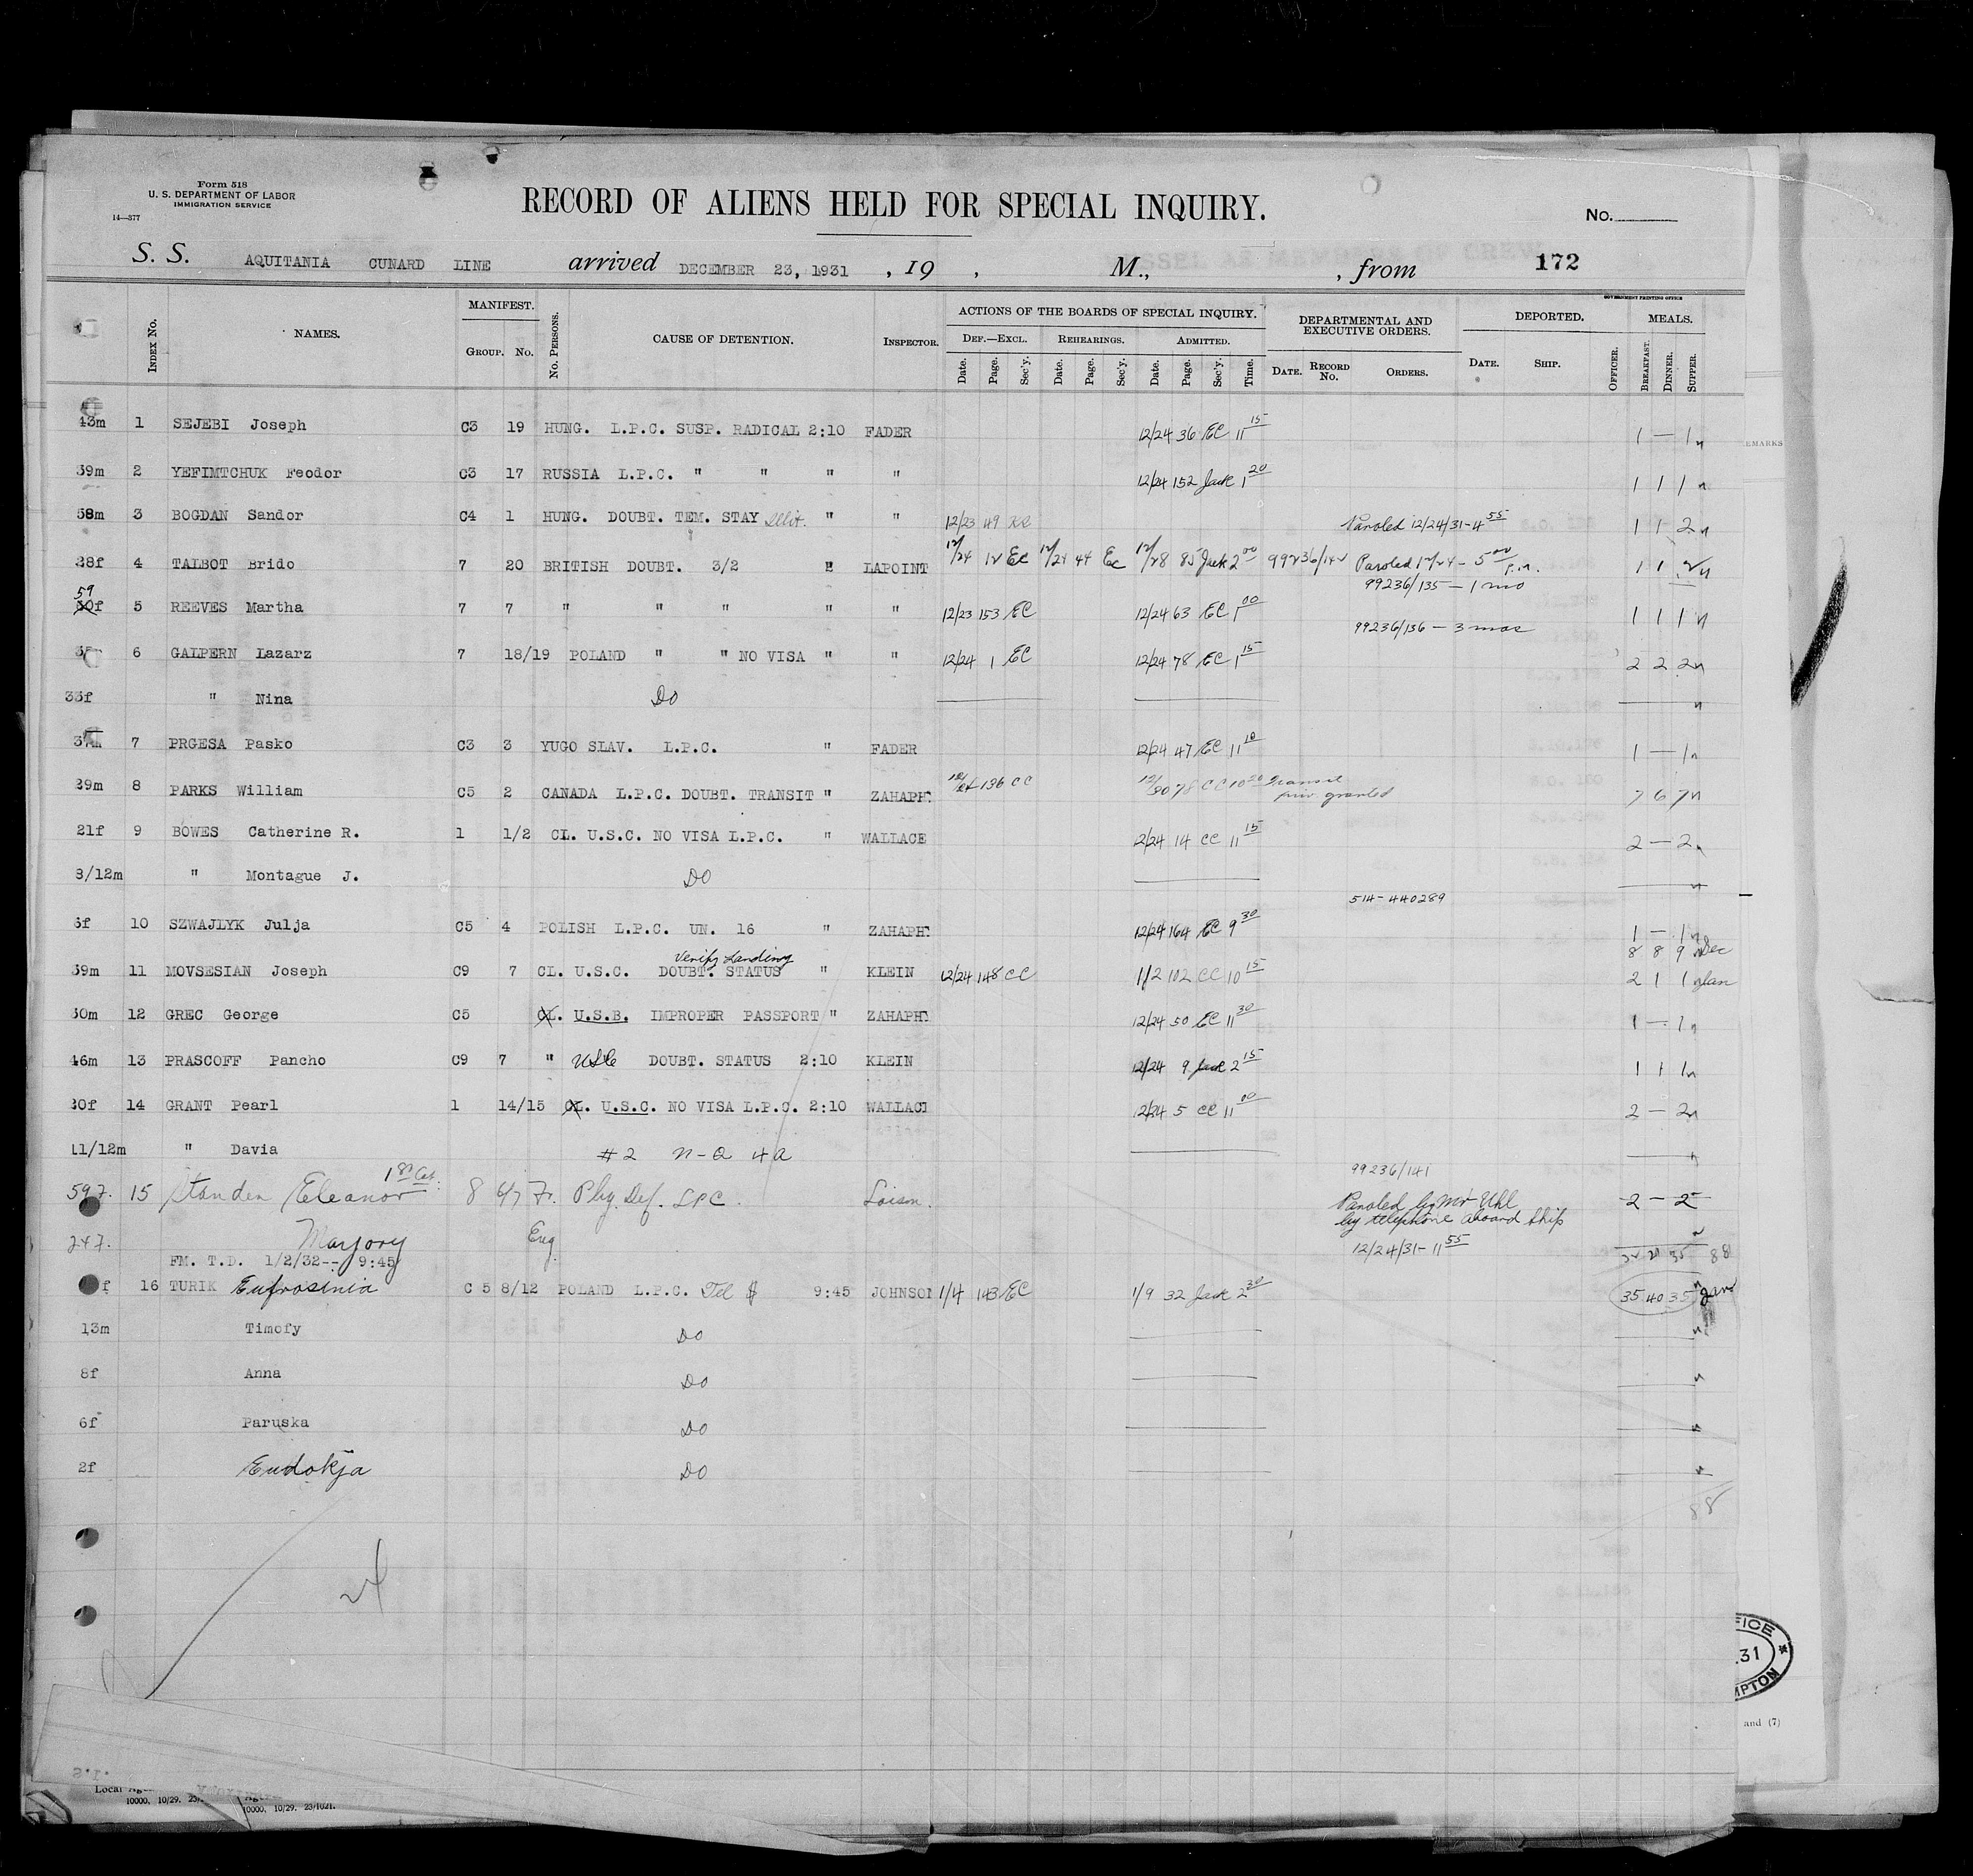 Form 518
U. S. DEPARTMENT OF LABOR
IMMIGRATION SERVICE
14—377
RECORD OF ALIENS HELD FOR SPECIAL INQUIRY.
No.
S. S. AQUITANIA CUNARD LINE arrived DECEMBER 23, 1931 , 19 , M., , from 172
GOVERNMENT PRINTING OFFICE
Index No. NAMES. MANIFEST. Group. No. No. Persons. CAUSE OF DETENTION. Inspector. ACTIONS OF THE BOARDS OF SPECIAL INQUIRY. DEPARTMENTAL AND EXECUTIVE ORDERS. DEPORTED. MEALS.
Def.—Excl. Rehearings. Admitted.
Date. Page. Sec'y. Date. Page. Sec'y. Date. Page. Sec'y. Time. Date. Record No. Orders. Date. Ship. Officer. Breakfast. Dinner. Supper.
43m 1 SEJEBI Joseph C3 19 HUNG. L.P.C. SUSP. RADICAL 2:10 FADER 12/24 36 EC 11 15 1 — 1n
39m 2 YEFIMTCHUK Feodor C3 17 RUSSIA L.P.C. " " " " 12/24 152 Jack 1 20 1 1 1 n
58m 3 BOGDAN Sandor C4 1 HUNG. DOUBT. TEM. STAY Illit. " " 12/23 49 Paroled 12/24/31-4 55 1 1 2n
28f 4 TALBOT Brido 7 20 BRITISH DOUBT. 3/2 " LAPOINT 12/24 12 EC 12/24 44 EC 12/28 85 Jack 2 00 99236/142 Paroled 12/24 - 5 00 P.m. 1 1 2n
99236/135 — 1 mo
59
30f 5 REEVES Martha 7 7 " " " " " 12/23 153 EC 12/24 63 EC 1 00 1 1 1 n
99236/136 — 3 mos
6 GALPERN Lazarz 7 18/19 POLAND " " NO VISA " " 12/24 1 EC 12/24 78 EC 1 15 2 2 2n
33f " Nina DO n
37m 7 PRGESA Pasko C3 3 YUGO SLAV. L.P.C. " FADER 12/24 47 EC 11 10 1 — 1n
29m 8 PARKS William C5 2 CANADA L.P.C. DOUBT. TRANSIT " ZAHAPH 12/24 136 CC 12/30 78 CC 10 20 Transit priv. granted 7 6 7n
21f 9 BOWES Catherine R. 1 1/2 CL. U.S.C. NO VISA L.P.C. " WALLACE 12/24 14 CC 11 15 2 — 2n
8/12m " Montague J. DO n
514-440289
6f 10 SZWAJLYK Julja C5 4 POLISH L.P.C. UN. 16 " ZAHAPH 12/24 164 EC 9 30 1 — 1n
Verify Landing 8 8 9 Dec
39m 11 MOVSESIAN Joseph C9 7 CL. U.S.C. DOUBT. STATUS " KLEIN 12/24 148 CC 1/2 102 CC 10 15 2 1 1 Jan
30m 12 GREC George C5 CL. U.S.B. IMPROPER PASSPORT " ZAHAPH 12/24 50 EC 11 30 1 — 1n
46m 13 PRASCOFF Pancho C9 7 " USC DOUBT. STATUS 2:10 KLEIN 12/24 9 Jack 2 15 1 1 1n
30f 14 GRANT Pearl 1 14/15 CL. U.S.C. NO VISA L.P.C. 2:10 WALLAC 12/24 5 CC 11 00 2 — 2n
11/12m " Davia #2 n-Q 4a n
1st Cab. 99236/141
59f. 15 Standen Eleanor 8 6/7 Fr. Phy. Def. LPC. Loison. Paroled by Mr Uhl 2 — 2
by telephone aboard ship
24f. Marjory Eng 12/24/31-11 55 88
FM. T.D. 1/2/32-- 9:45
f 16 TURIK Eufrosinia C 5 8/12 POLAND L.P.C. Tel $ 9:45 JOHNSON 1/4 143 EC 1/9 32 Jack 2 30 35 40 35 Jan
13m Timofy DO n
8f Anna DO n
6f Paruska DO n
2f Eudokja DO n
88
24
EMARKS
FICE
.31
MPTON
and (7)
Local
10000, 10/29.
10000, 10/29. 23/1021.